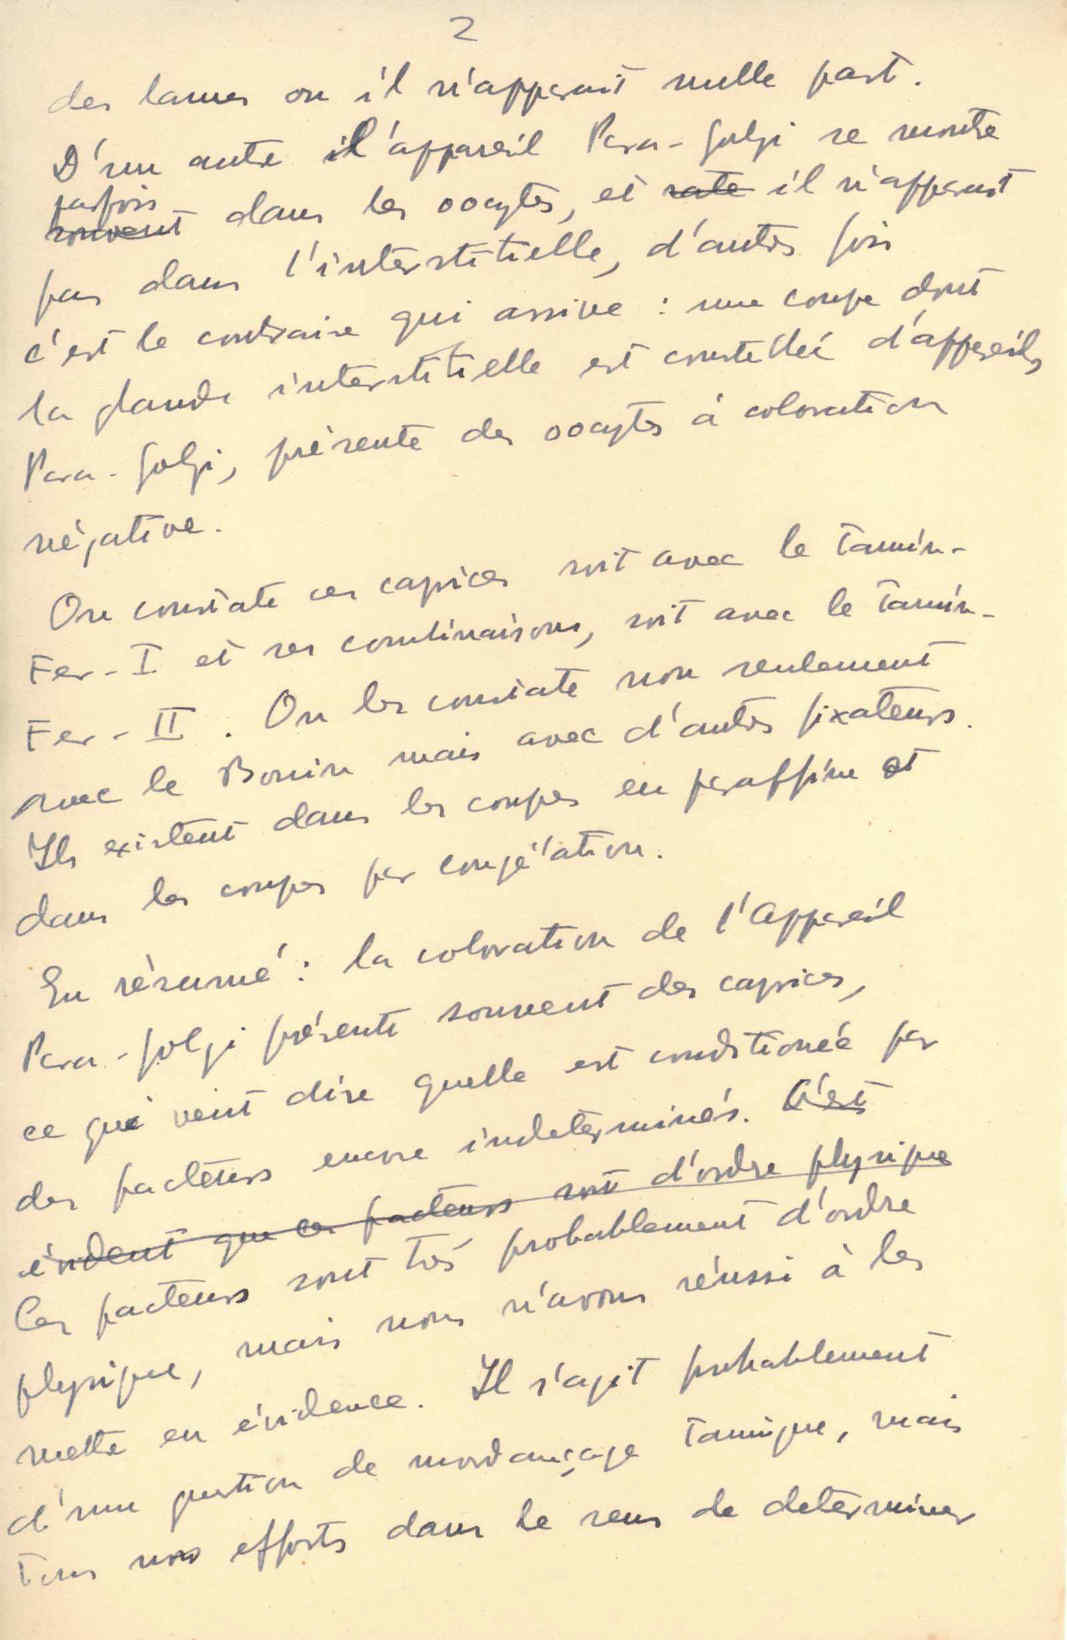 2
des lames ou il n'apperait nulle part.
D'une autre il l'appareil Para-Golgi se montre
parfois
souvent dans les oocytes, et rate il n'apperait
pas dans l'interstitielle, d'autres fois
c'est le contraire qui arrive : une coupe dont
la glande interstitielle est constellée d'appareils
Para-Golgi, présente des oocytes à coloration
négative.
On constate ces caprices soit avec le Tannin-
Fer-I et ses combinaisons, soit avec le Tannin-
Fer-II. On les constate non seulement
avec le Bouin mais avec d'autres fixateurs.
Ils existent dans les coupes en paraffine et
dans les coupes par congélation.
En résumé : la coloration de l'Appareil
Para-Golgi présente souvent des caprices,
ce qui veut dire quelle est conditionée par
des facteurs encore indeterminés. C'est
évident que ces facteurs sont d'ordre physique
Ces facteurs sont très probablement d'ordre
physique, mais nous n'avons réussi à les
mettre en évidence. Il s'agit probablement
d'une question de mordançage tannique, mais
tous nos efforts dans le sens de determiner